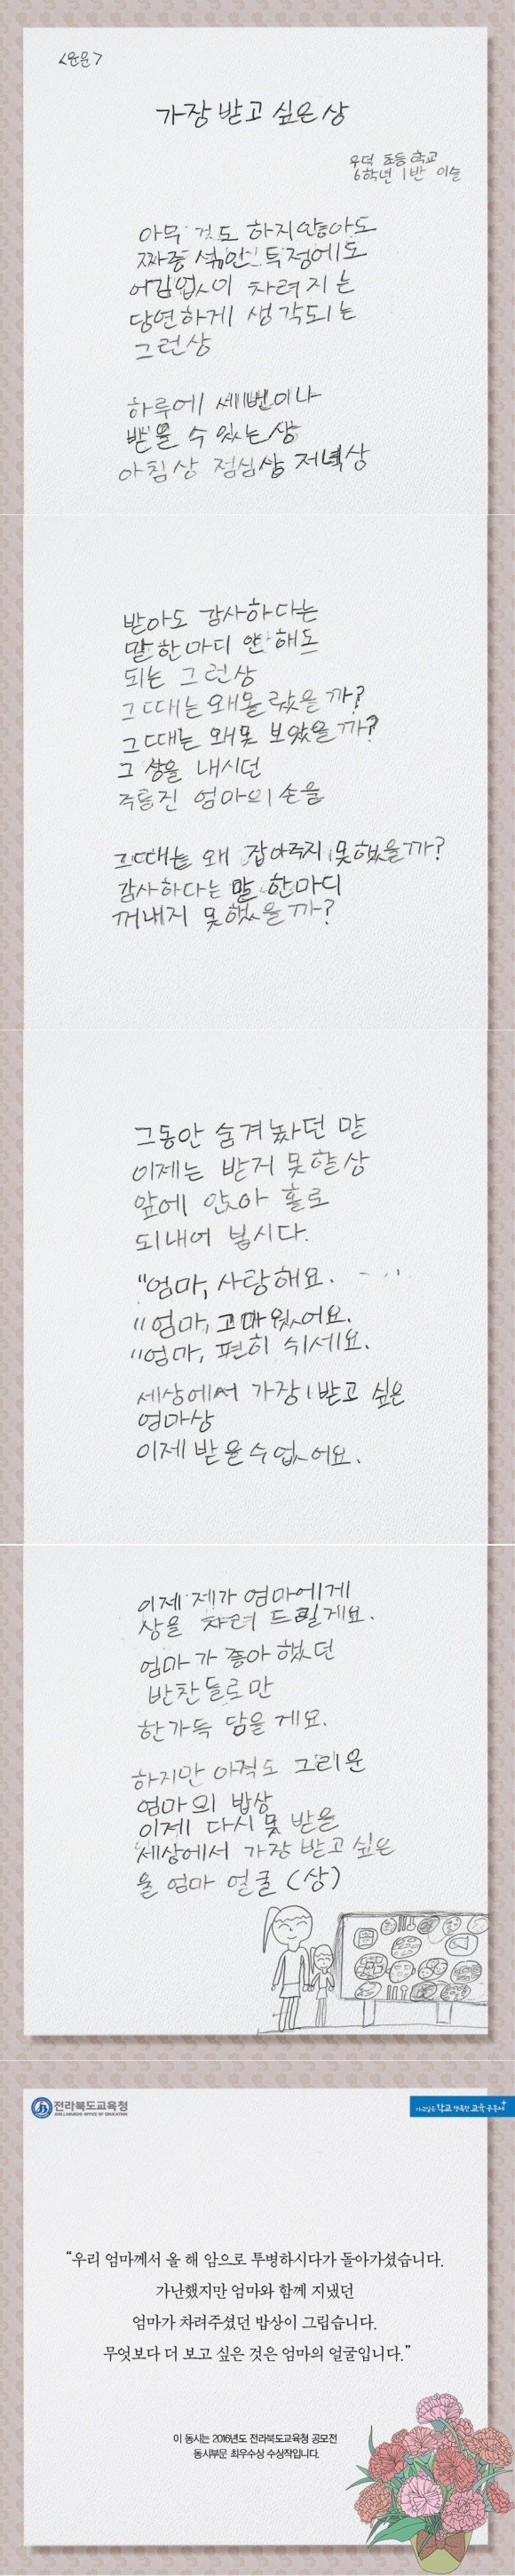 <운문>
가장 받고 싶은 상
우덕 초등학교
6학년 1반 이슬
아무 것도 하지않아도
짜증 섞인 투정에도
어김없이 차려지는
당연하게 생각되는
그런상
하루에 세번이나
받을 수 있는 상
아침상 점심상 저녁상
받아도 감사하다는
말 한마디 안 해도
되는 그런상
그때는 왜몰랐을까?
그때는 왜못 보았을까?
그 상을 내시던
주름진 엄마의 손을
그때는 왜 잡아주지 못했을까?
감사하다는 말 한마디
꺼내지 못했을까?
그동안 숨겨놨던 말
이제는 받거 못할 상
앞에 앉아 홀로
되내어 봅시다.
"엄마, 사랑해요.
"엄마, 고마웠어요.
"엄마, 편히 쉬세요.
세상에서 가장 받고 싶은
엄마상
이제 받을수 없어요.
이제 제가 엄마에게
상을 차려 드릴게요.
엄마가 좋아했던
반찬들로만
한가득 담을게요.
하지만 아직도 그리운
엄마의 밥상
이제 다시 못 받을
세상에서 가장 받고 싶은
울 엄마 얼굴 (상)
전라북도교육청
JEOLLABUKDO OFFICE OF EDUCATION
가고싶은 학교 행복한 교육공동체
"우리 엄마께서 올 해 암으로 투병하시다가 돌아가셨습니다.
가난했지만 엄마와 함께 지냈던
엄마가 차려주셨던 밥상이 그립습니다.
무엇보다 더 보고 싶은 것은 엄마의 얼굴입니다."
이 동시는 2016년도 전라북도교육청 공모전
동시부문 최우수상 수상작입니다.